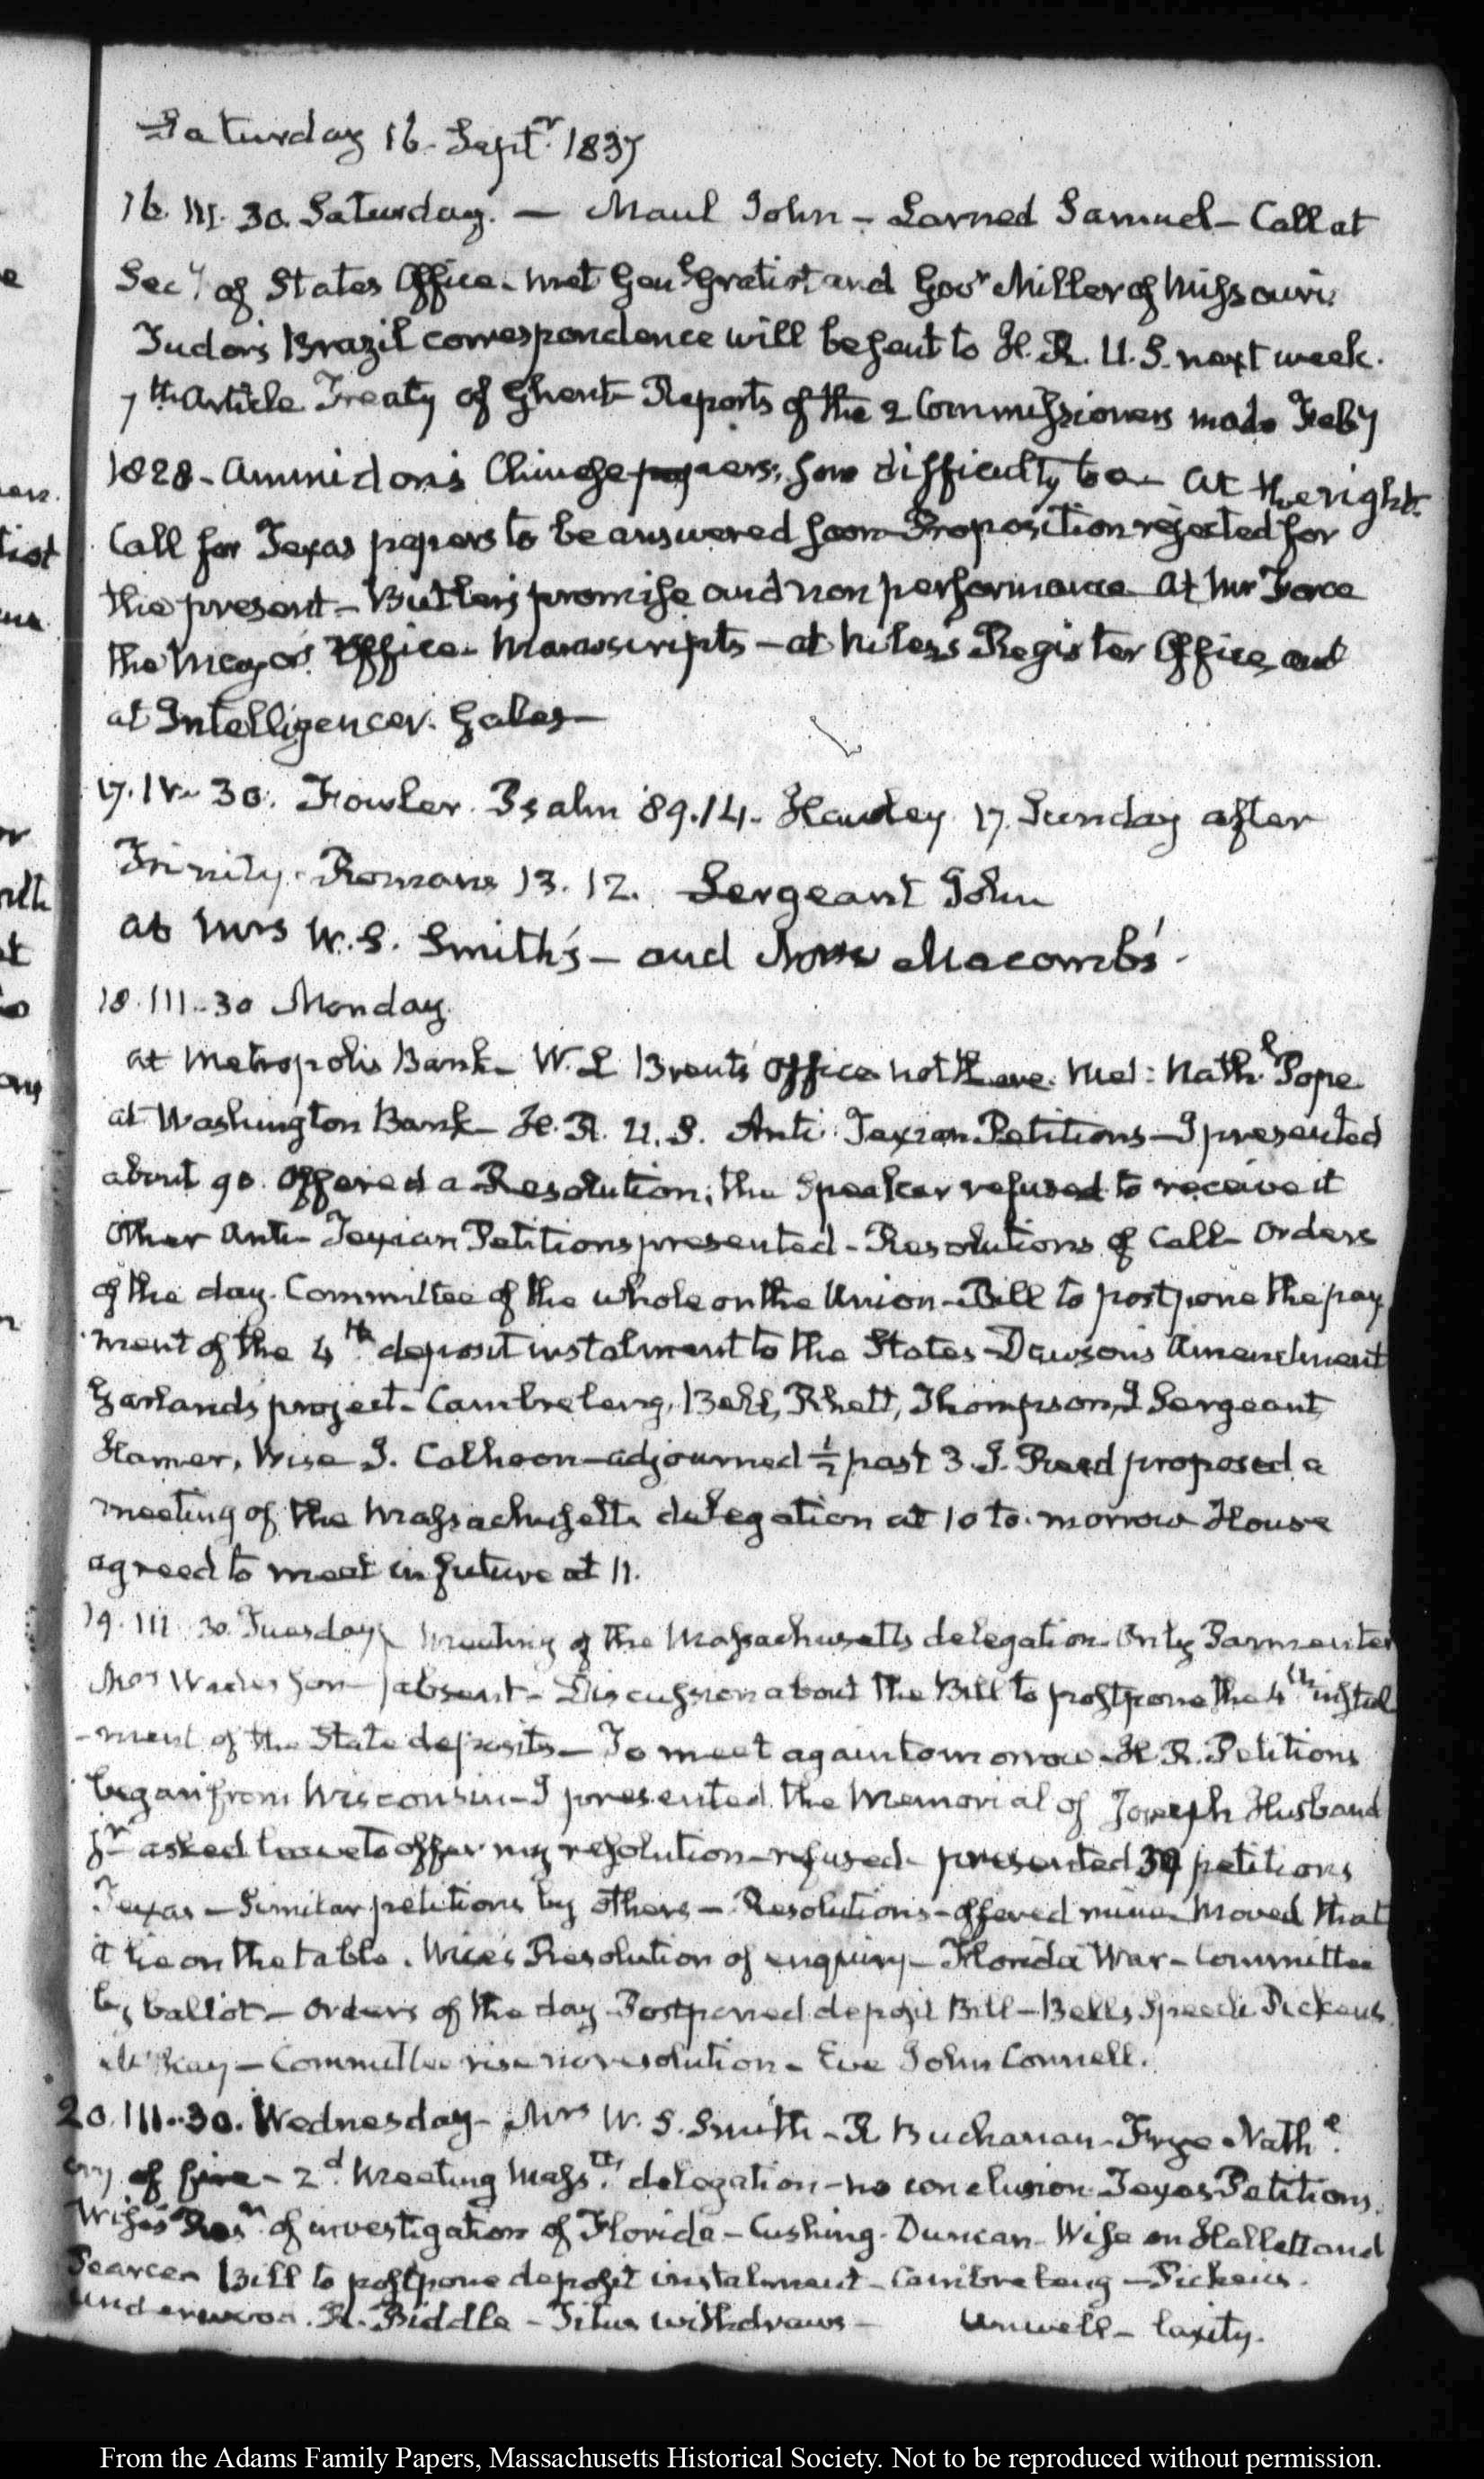 Saturday 16. Septr. 1837
16. III. 30. Saturday. — Maul John - Larned Samuel - Call at
Secy of States Office - met Genl. Gratiot and Govr Miller of Missouri
Tudor's Brazil correspondence will be sent to H. R. U. S. next week.
7th Article Treaty of Ghent - Reports of the 2 Commissioners made Feby
1828 - Ammidon's Chinese papers, difficulty to - at the right
Call for Texas papers to be answered soon - Proposition rejected for
the present - Butler's promise and non performance - at Mr Force
the Mayor's Office - Manuscripts - at Niles's Register Office, and
at Intelligencer. Gales —
17. IV. 30. Fowler. Psalm 89.14. Hawley 17. Sunday after
Trinity. Romans 13. 12. Sergeant John
at Mrs W. S. Smith's - and Mrs Macomb's.
18. III. 30 Monday.
at Metropolis Bank - W. L Brent's Office not there. Met: Nathl. Pope
at Washington Bank - H. R. U. S. Anti Texian Petitions - I presented
about 90. Offered a Resolution; the Speaker refused to receive it
Other Anti-Texian Petitions presented - Resolutions of Call - Orders
of the day. Committee of the whole on the Union - Bill to postpone the pay
ment of the 4th deposit instalment to the States - Dawson's Amendment
Garland's project - Cambreleng, Bell, Rhett, Thompson, J Sergeant
Hamer, Wise J. Calhoon - adjourned ½ past 3. J. Reed proposed a
meeting of the Massachusetts delegation at 10 to-morrow House
agreed to meet in future at 11.
19. III. 30. Tuesday. Meeting of the Massachusetts delegation - Only Parmenter
absent - Discussion about the Bill to postpone the 4th instal
-ment of the State deposits - To meet again tomorrow - H. R. Petitions
began from Wisconsin - I presented the Memorial of Joseph Husband
jr asked leave to offer my resolution - refused - presented 39 petitions
Texas - Similar petitions by others - Resolutions - offered mine - Moved that
it lie on the table. Wise's Resolution of enquiry - Florida War - Committee
by ballot - Orders of the day Postponed deposit Bill - Bell's Speech Pickens
McKay - Committee rise no resolution - Eve John Connell.
20. III. 30. Wednesday - Mrs W. S. Smith - R Buchanan - Frye Nathl.
cry of fire - 2d. Meeting Masstts. delegation - no conclusion. Texas Petitions.
Wise's Resn. of investigation of Florida - Cushing. Duncan - Wise on Hallett and
Pearce - Bill to postpone deposit instalment - Cambreleng - Pickens.
Underwood. R. Biddle - Titus withdraws - Unwell - laxity.
From the Adams Family Papers, Massachusetts Historical Society. Not to be reproduced without permission.